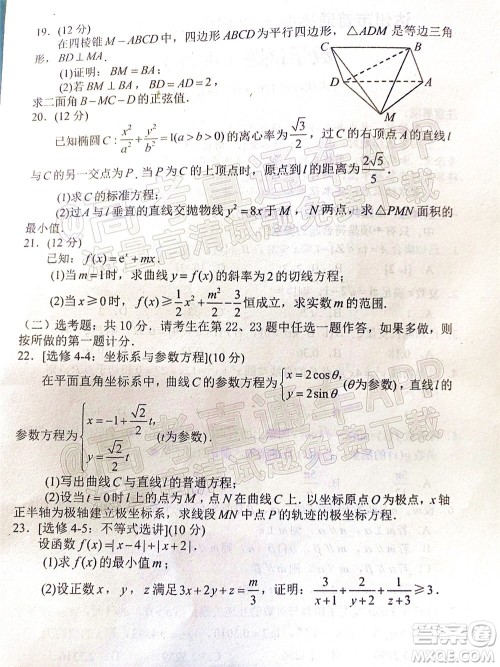 19. (12 分)
在四棱锥 M－ABCD 中，四边形 ABCD 为平行四边形，△ADM 是等边三角
形，BD⊥MA.
(1)证明：BM＝BA；
(2)若 BM＝BA，BD＝AD＝2，
求二面角 B－MC－D 的正弦值.
C
B
D
A
M
20. (12 分)
已知椭圆 C：x²/a²＋y²/b²＝1(a＞b＞0)的离心率为√3/2，过 C 的右顶点 A 的直线 l
与 C 的另一交点为 P. 当 P 为 C 上顶点时，原点到 l 的距离为 2√5/5.
(1)求 C 的标准方程；
(2)过 A 与 l 垂直的直线交抛物线 y²＝8x 于 M，N 两点，求△PMN 面积的
最小值.
21. (12 分)
已知：f(x)＝eˣ＋mx.
(1)当 m＝1 时，求曲线 y＝f(x)的斜率为 2 的切线方程；
(2)当 x≥0 时，f(x)≥1/2 x²＋m²/2－3/2 恒成立，求实数 m 的范围.
（二）选考题：共 10 分. 请考生在第 22、23 题中任选一题作答，如果多做，则
按所做的第一题计分.
22. [选修 4-4：坐标系与参数方程](10 分)
在平面直角坐标系中，曲线 C 的参数方程为{x＝2cosθ, y＝2sinθ (θ为参数)，直线 l 的
参数方程为{x＝－1＋√2/2 t, y＝√2/2 t (t 为参数).
(1)写出曲线 C 与直线 l 的普通方程；
(2)设过原点与 l 的上的点为 M，N 点，以直角坐标系 xOy 的 O 为极点，x 轴
正半轴为极轴建立极坐标系，求线段 MN 中点的轨迹的极坐标方程.
23. [选修 4-5：不等式选讲](10 分)
设函数 f(x)＝|x－4|＋|x＋2|.
(1)求 f(x)的最小值 m；
(2)设正数 x，y，z 满足 3x＋2y＋z＝m/3，证明：3/(x＋1)＋4/(y＋1)＋1/(z＋1)≥3.
高考直通车APP
海量高清试题免费下载
高考直通车APP
海量高清试题免费下载